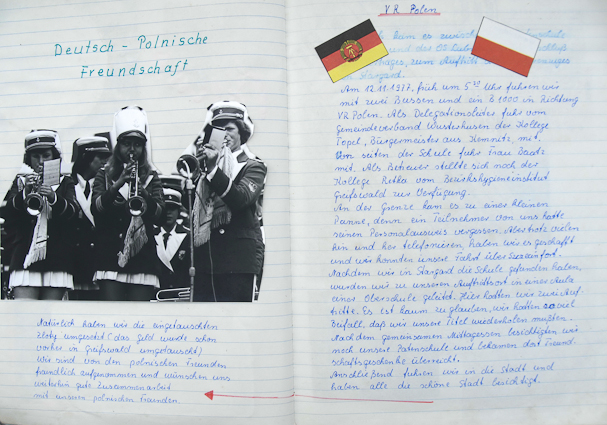 Deutsch - Polnische
Freundschaft
Natürlich haben wir die eingetauschten
Zloty umgesetzt (das Geld wurde schon
vorher in Greifswald umgetauscht)
Wir sind von den polnischen Freunden
freundlich aufgenommen und wünschen uns
weiterhin gute Zusammenarbeit
mit unseren polnischen Freunden.
VR Polen
kam es
zum Auftritt
in Stargard.
Am 12.11.1987, früh um 5 Uhr fuhren wir
mit zwei Bussen und ein B 1000 in Richtung
VR Polen. Als Delegationsleiter fuhr vom
Gemeindeverband Wusterhusen der Kollege
Topel, Bürgermeister aus Kemnitz, mit.
Von seiten der Schule fuhr Frau
mit. Als Betreuer stellte sich noch der
Kollege Retka vom Bezirkshygieneinstitut
Greifswald zur Verfügung.
An der Grenze kam es zu einer kleinen
Panne, denn ein Teilnehmer von uns hatte
seinen Personalausweis vergessen. Aber trotz vielen
hin und her telefonieren, haben wir es geschafft
und wir konnten unsere Fahrt über fort.
Nachdem wir in Stargard die Schule gefunden haben,
wurden wir zu unseren Auftrittsort in eine Aula
einer Oberschule geleitet. Hier hatten wir zwei Auf-
tritte. Es ist kaum zu glauben, wir hatten so viel
Beifall, daß wir unsere Titel wiederholen mußten.
Nach dem gemeinsamen Mittagessen besichtigten wir
noch unsere Patenschule und bekamen dort Freund-
schaftsgeschenke überreicht.
Anschließend fuhren wir in die Stadt und
haben alle die schöne Stadt besichtigt.